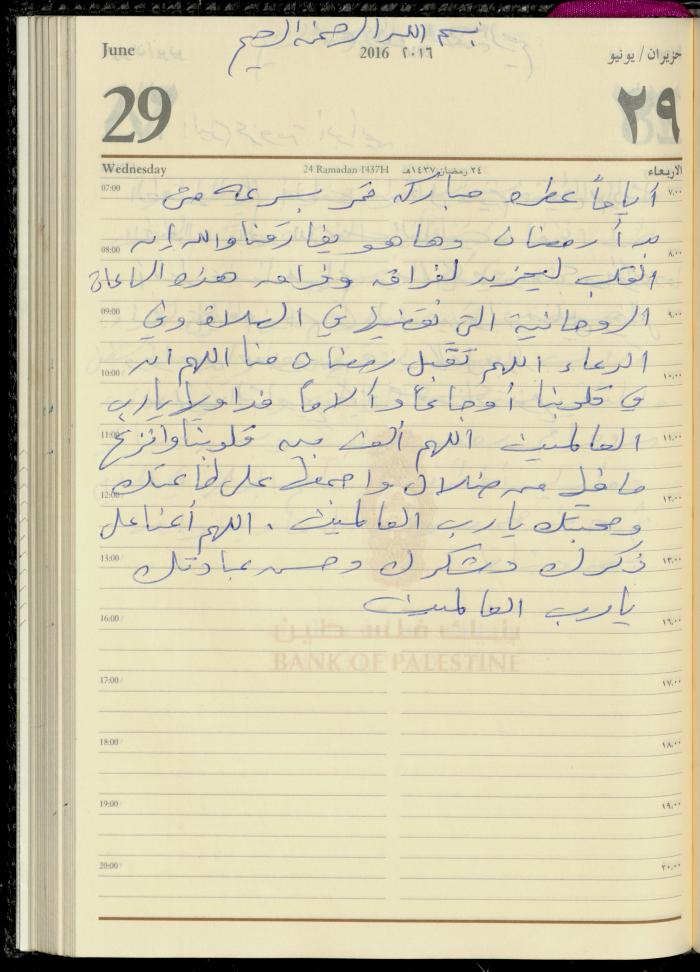 بسم الله الرحمن الرحيم
June 2016 ٢٠١٦ حزيران / يونيو
29 ٢٩
Wednesday 24 Ramadan 1437H ٢٤ رمضان ١٤٣٧هـ الاربعاء
07:00 أياماً عطره مباركه تمر بسرعه من ٧:٠٠
بدأ رمضان وها هو يفارقنا والله إن
08:00 ٨:٠٠
القلب ليحزن لفراقه وفراق هذه الساعات
09:00 الروحانية التي نقضيها في الصلاة وفي ٩:٠٠
الدعاء اللهم تقبل رمضان منا اللهم ان
10:00 ١٠:٠٠
في قلوبنا أوجاعاً وآلاماً فداويها يارب
11:00 العالمين اللهم ألف بين قلوبنا وانزع ١١:٠٠
ما فيها من ضلال واجمعها على طاعتك
12:00 ١٢:٠٠
ومحبتك يارب العالمين . اللهم أعنا على
13:00 ذكرك وشكرك وحسن عبادتك ١٣:٠٠
يارب العالمين
16:00 ١٦:٠٠
بنك فلسطين
BANK OF PALESTINE
17:00 ١٧:٠٠
18:00 ١٨:٠٠
19:00 ١٩:٠٠
20:00 ٢٠:٠٠